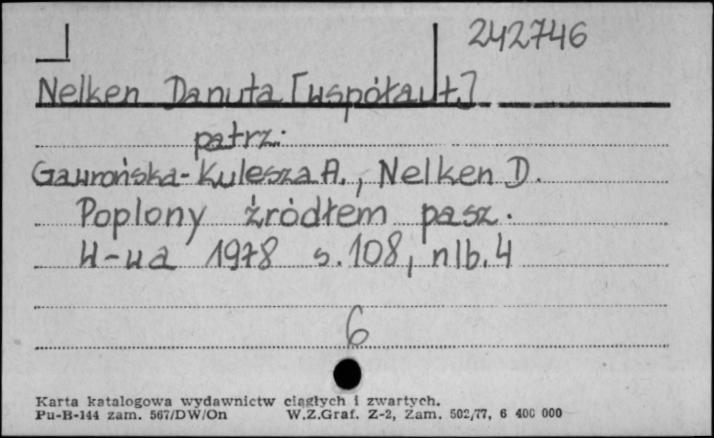 242746
Nelken Danuta [współaut.]
patrz:
Gawrońska-Kulesza A., Nelken D.
Poplony źródłem pasz.
W-wa 1978 s. 108, nlb. 4
6
Karta katalogowa wydawnictw ciągłych i zwartych.
Pu-B-144 zam. 567/DW/On W.Z.Graf. Z-2, Zam. 502/77, 6 400 000